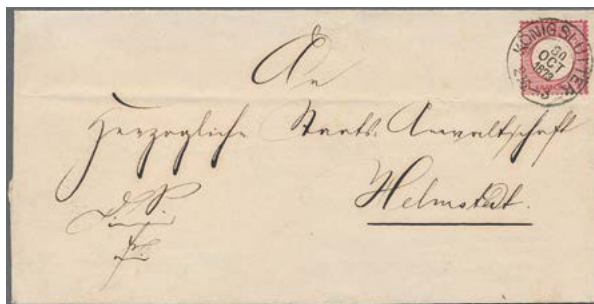 KÖNIGSLUTTER
30
OCT
1873
An
Herzogliche Staats-Anwaltschaft
Helmstedt.